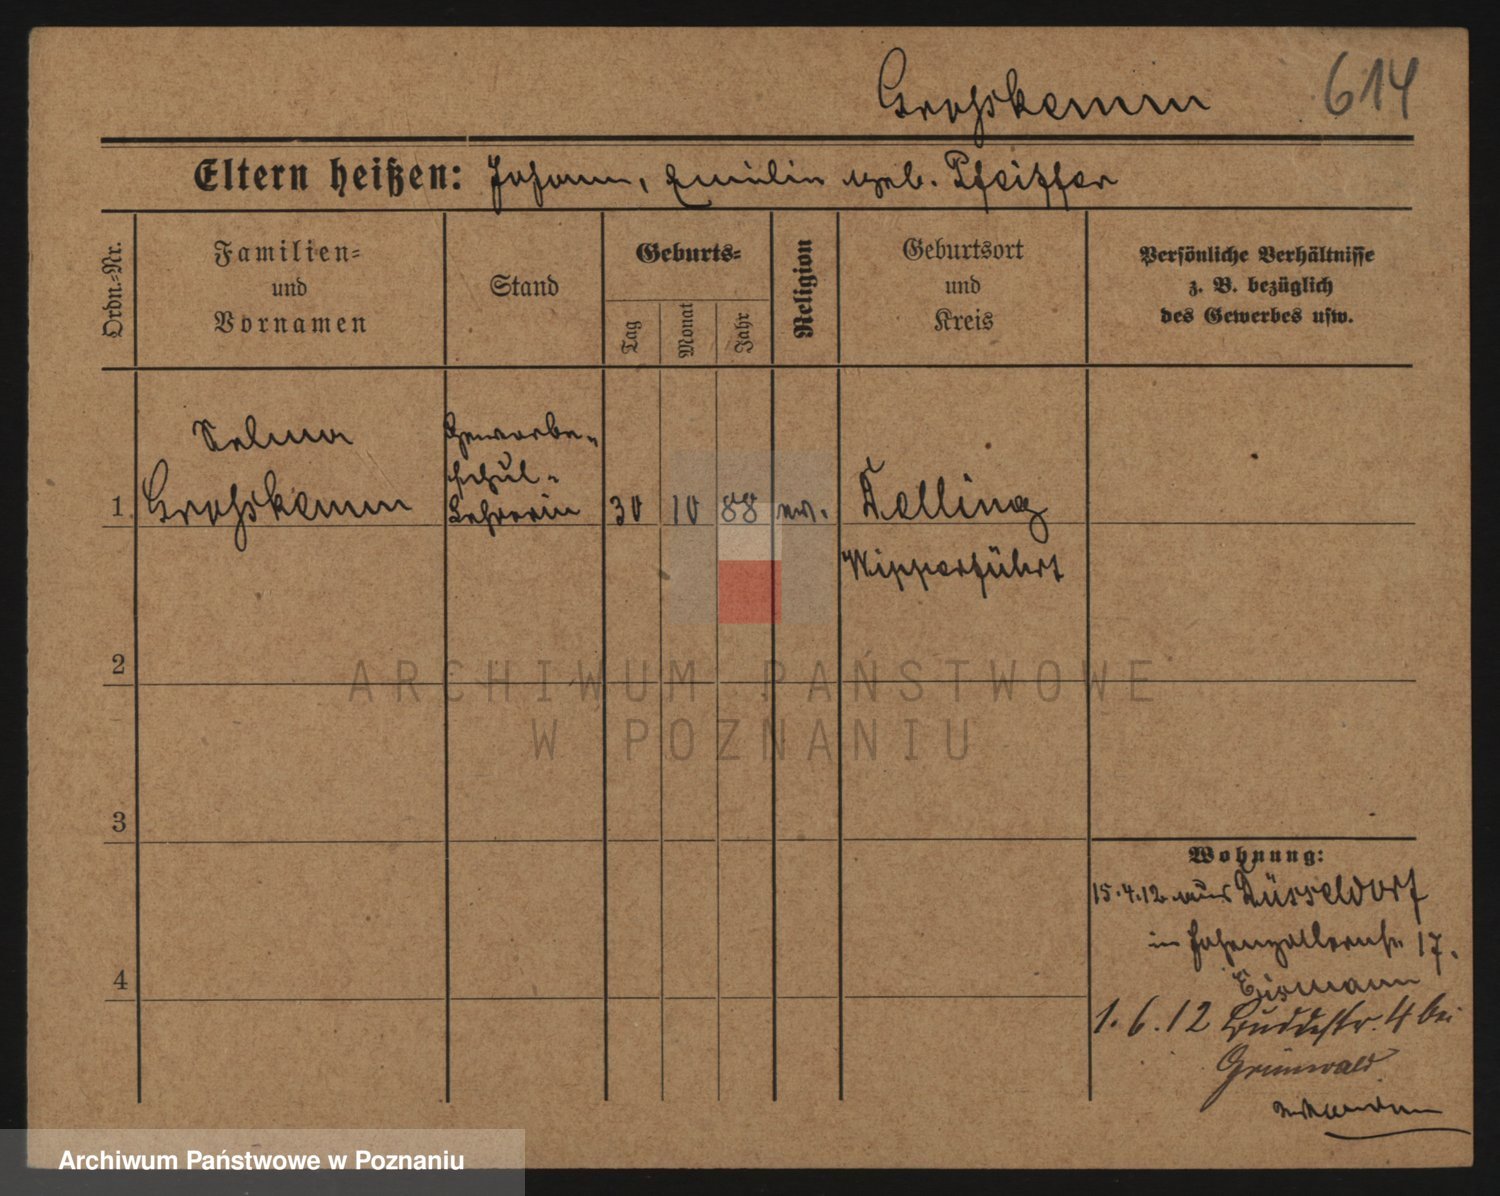 Grosskemm 614
Eltern heißen: Johann, Emilie geb. Pfeiffer
Ordn.-Nr.
Familien-
und
Vornamen
Stand
Geburts-
Tag
Monat
Jahr
Religion
Geburtsort
und
Kreis
Persönliche Verhältnisse
z. B. bezüglich
des Gewerbes usw.
Selma
Gewerbe-
schul-
1 Grosskemm Lehrerin 30 10 88 ev. Delling
Wipperführt
2
3
4
Wohnung:
15.4.12 aus Düsseldorf
in Hohenzollernstr. 17.
1.6.12 Buddestr. 4 bei
Grünwald
ARCHIWUM PAŃSTWOWE
W POZNANIU
Archiwum Państwowe w Poznaniu